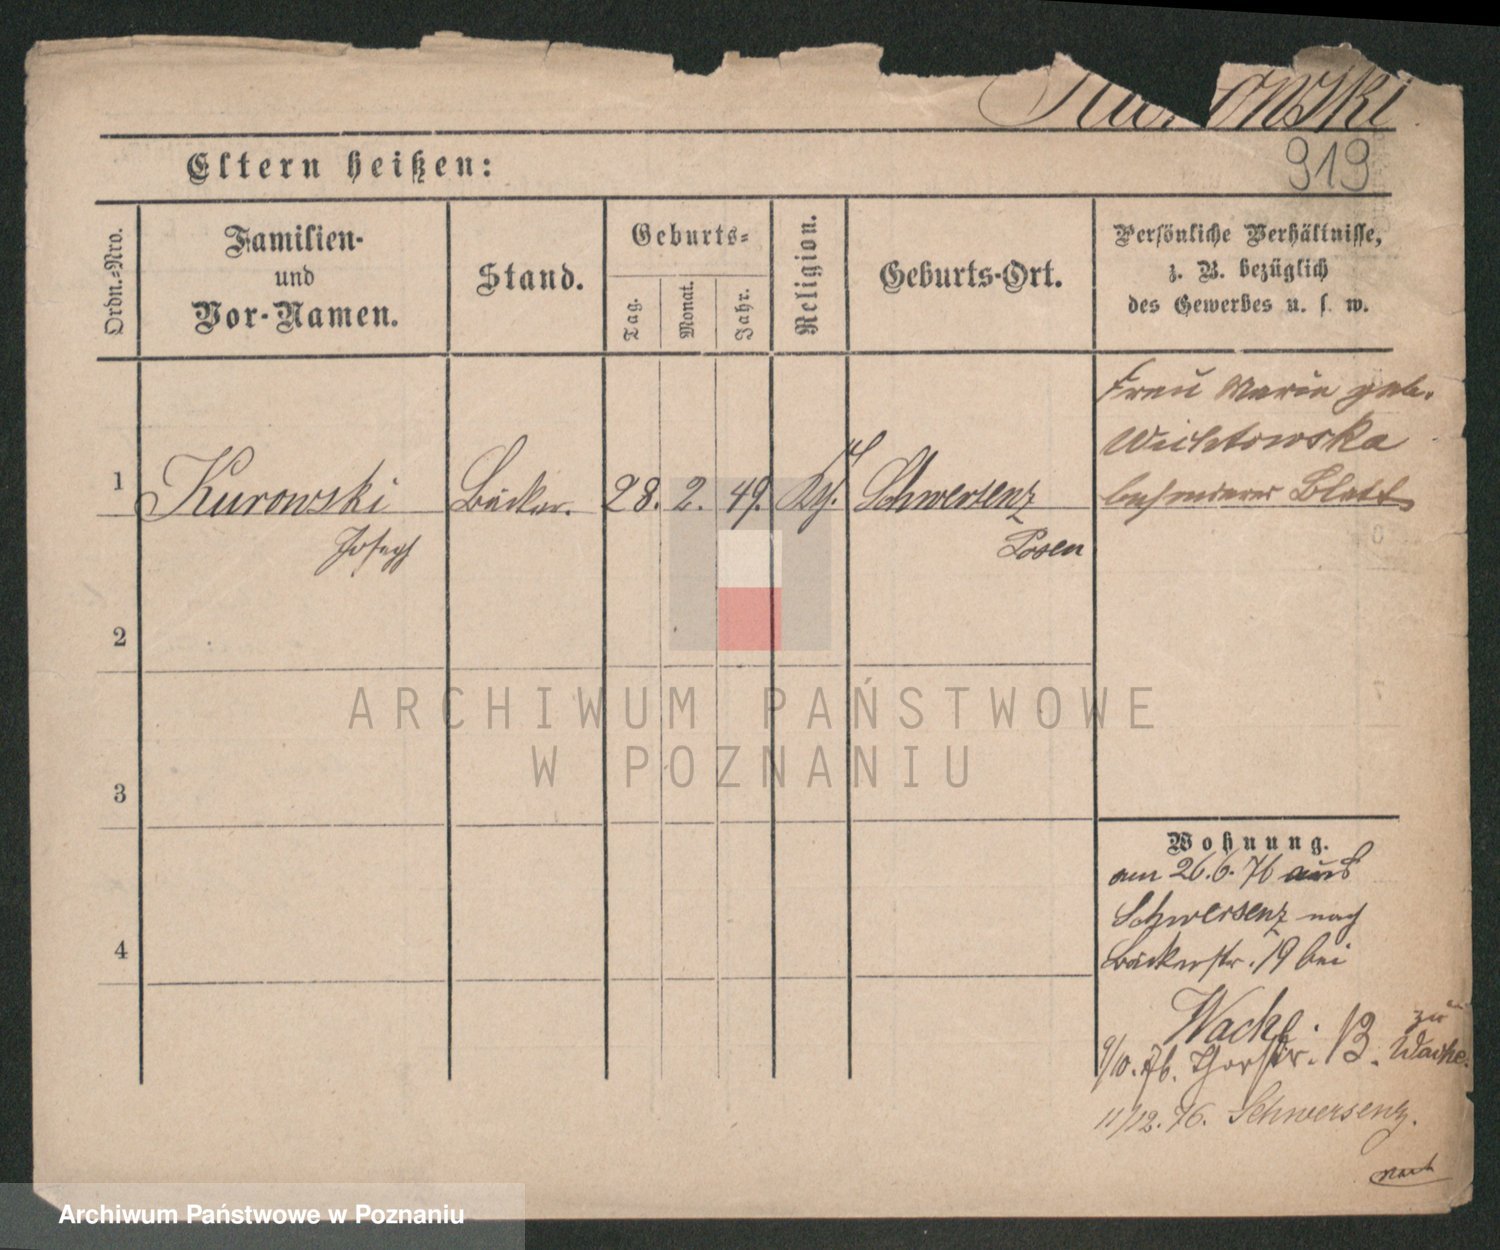 Kurowski
919
Eltern heißen:
Ordn.-Nro.
Familien-
und
Vor-Namen.
Stand.
Geburts-
Tag.
Monat.
Jahr.
Religion.
Geburts-Ort.
Persönliche Verhältnisse,
z. B. bezüglich
des Gewerbes u. s. w.
1
Kurowski
Joseph
Bäcker.
28. 2. 49.
Schwersenz
Posen
Frau Marie geb.
Wichtowska
besonderes Blatt
2
3
4
Wohnung.
am 26.6.76 aus
Schwersenz nach
Bäckerstr. 19 bei
Wache.
9/10. 76. Thorstr. 13. zu Wache.
11/12. 76. Schwersenz.
ARCHIWUM PAŃSTWOWE
W POZNANIU
Archiwum Państwowe w Poznaniu